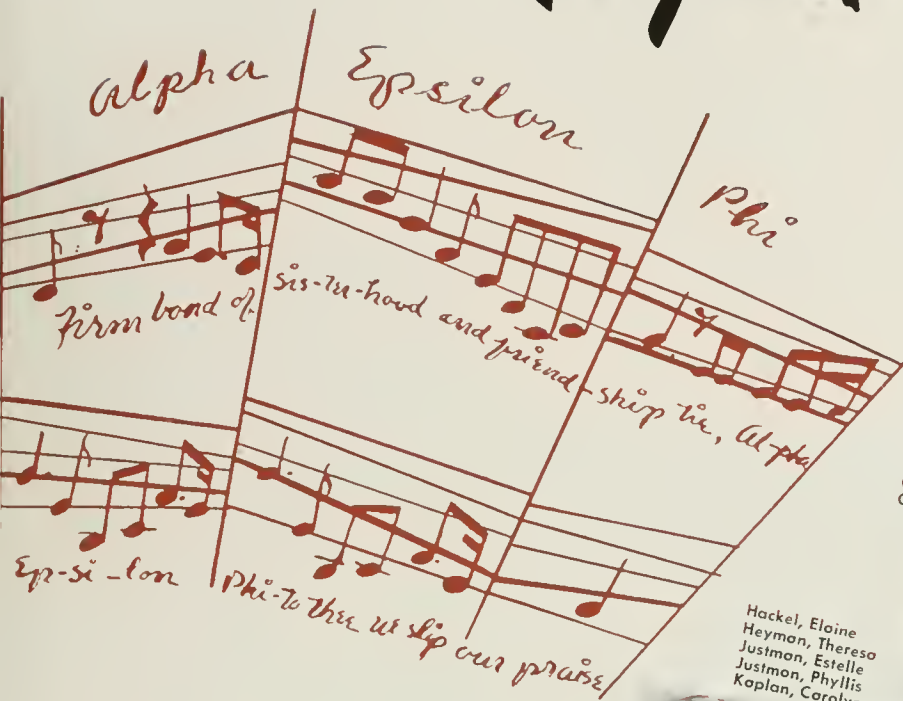 Alpha Epsilon Phi
Firm bond of sis-ter-hood and friend-ship tie, Al-pha
Ep-si-lon Phi-to thee we slip our praise
Hackel, Elaine
Heyman, Theresa
Justman, Estelle
Justman, Phyllis
Kaplan, Carolyn